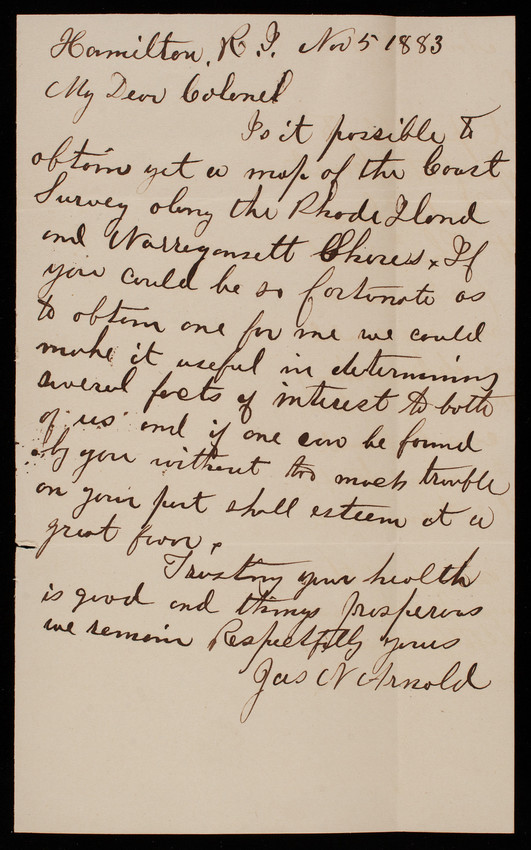 Hamilton, R. I. Nov 5 1883
My Dear Colonel
Is it possible to
obtain yet a map of the Coast
Survey along the Rhode Iland
and Narragansett Shores. If
you could be so fortunate as
to obtain one for me we could
make it useful in determining
several facts of interest to both
of us and if one can be found
by you without too much trouble
on your part shall esteem it a
great favor.
Trusting your health
is good and things prosperous
we remain Respectfully yours
Jas N Arnold